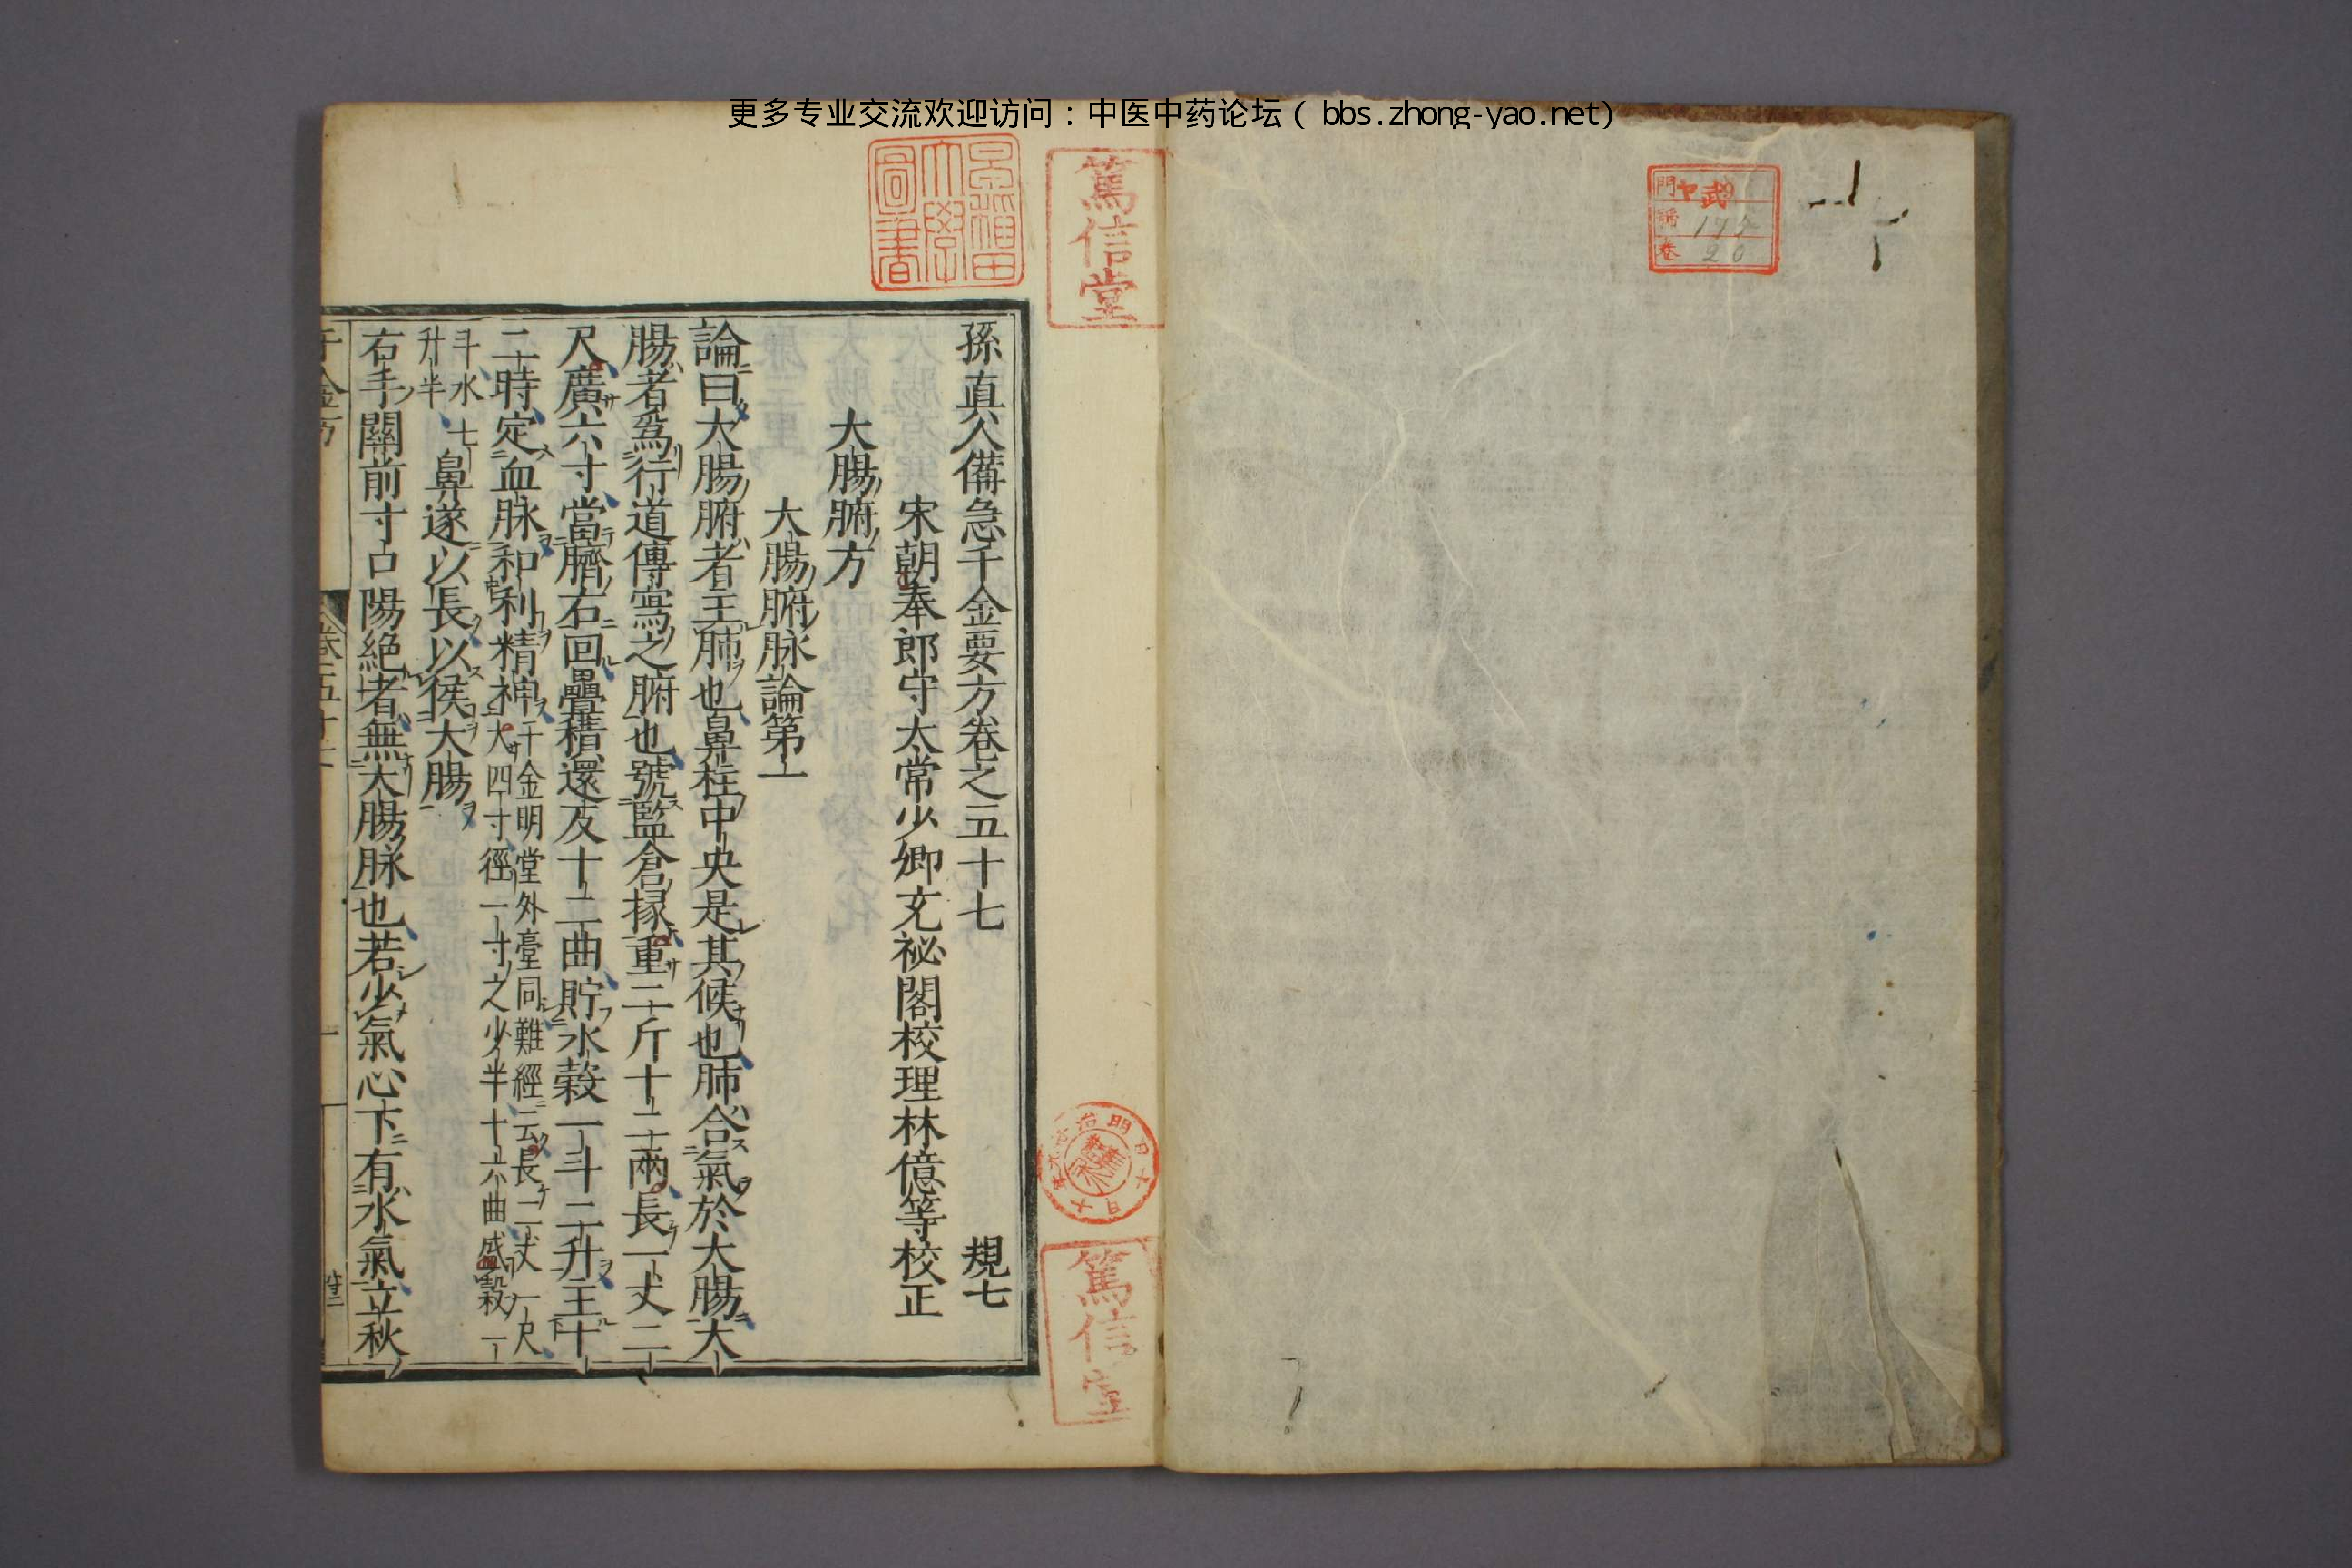 更多专业交流欢迎访问：中医中药论坛（bbs.zhong-yao.net）
門 ヤ武9
號 177
卷 20
篤信堂
早稲田大學圖書
孫真人備急千金要方卷之五十七 規七
宋朝奉郎守太常少卿充祕閣校理林億等校正
大腸腑方
大腸腑脉論第一
論曰大腸腑者主肺也鼻柱中央是其候也肺合氣於大腸大
腸者爲行道傳寫之腑也號監倉掾重二斤十二兩長一丈二
尺廣六寸當臍右回疊積還反十二曲貯水穀一斗二升主十
二時定血脉和利精神
千金明堂外臺同難經云長二丈一尺
大四寸徑一寸之少半十六曲盛穀一
斗水七
升半
鼻遂以長以候大腸
右手關前寸口陽絶者無大腸脉也若少氣心下有水氣立秋
千金方
卷五十七
一
篤信堂